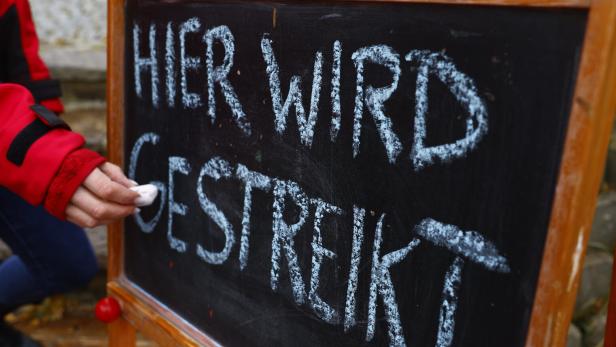 HIER WIRD
GESTREIKT